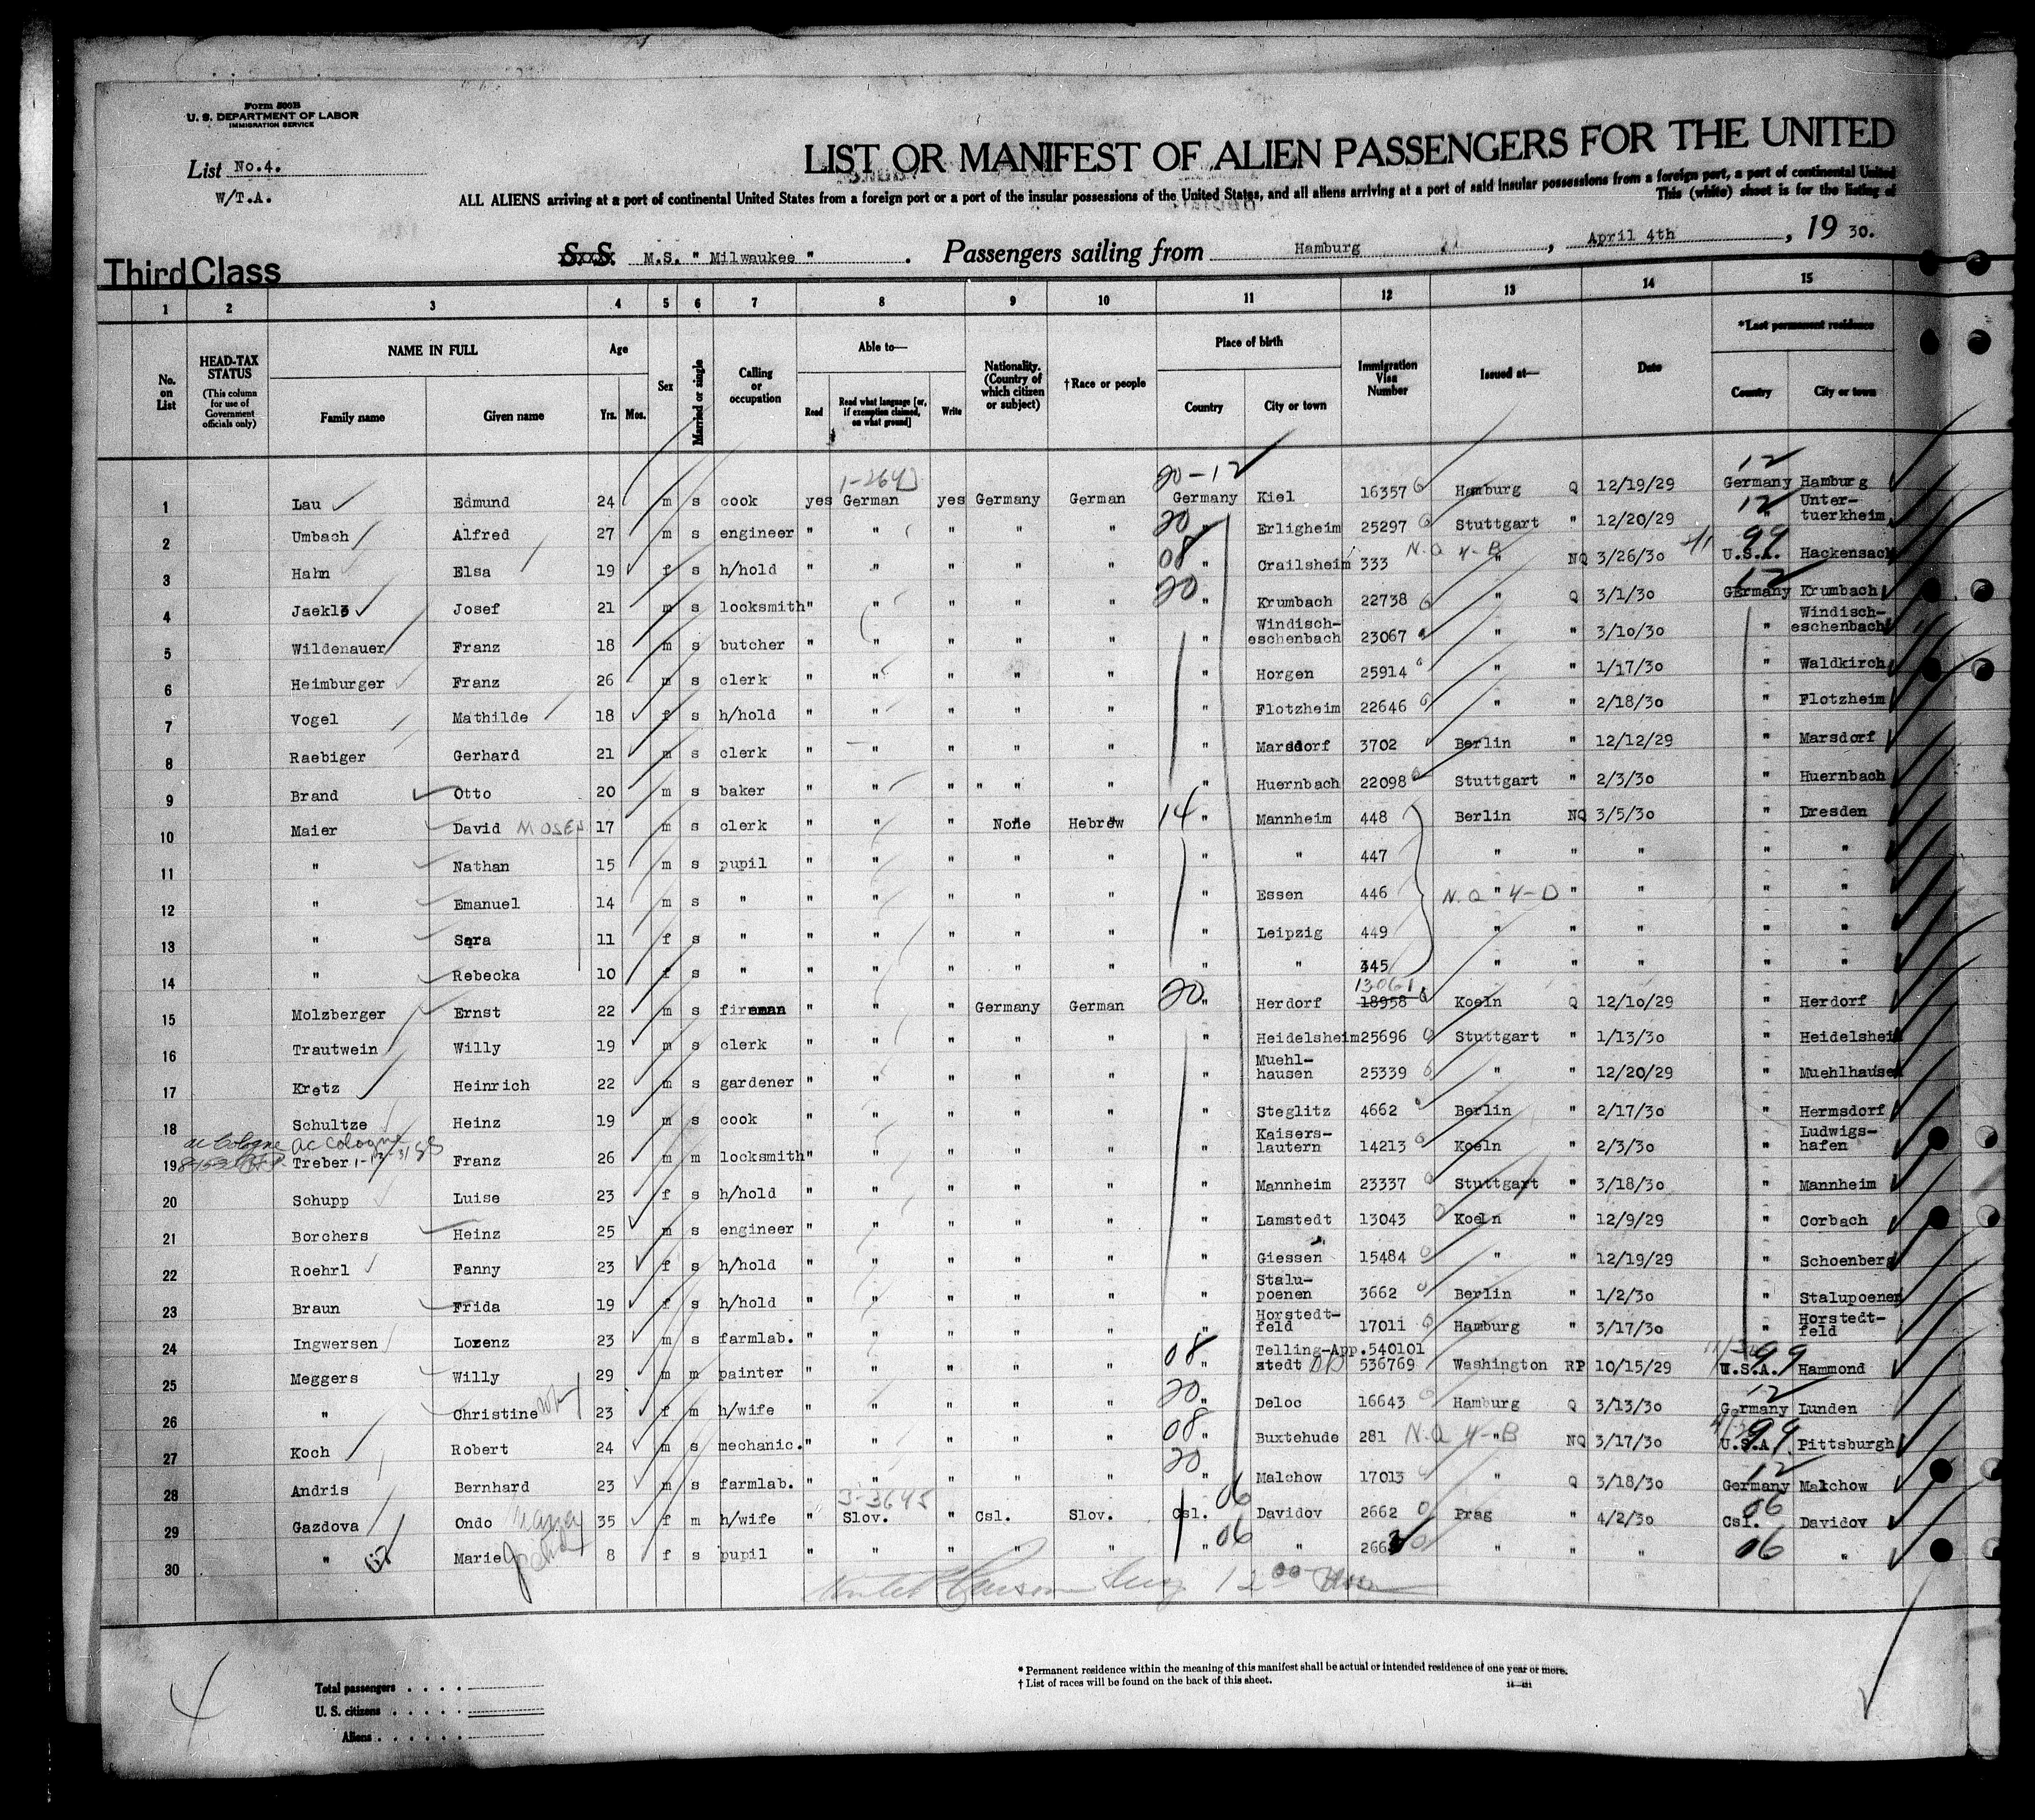 Form 500B
U. S. DEPARTMENT OF LABOR
IMMIGRATION SERVICE
List No.4.
W/T.A.
LIST OR MANIFEST OF ALIEN PASSENGERS FOR THE UNITED
ALL ALIENS arriving at a port of continental United States from a foreign port or a port of the insular possessions of the United States, and all aliens arriving at a port of said insular possessions from a foreign port, a port of continental United
This (white) sheet is for the listing of
Third Class
S.S. M.S. " Milwaukee " . Passengers sailing from Hamburg , April 4th , 19 30.
1 2 3 4 5 6 7 8 9 10 11 12 13 14 15
No. on List
HEAD-TAX STATUS
(This column for use of Government officials only)
NAME IN FULL
Family name Given name
Age
Yrs. Mos.
Sex
Married or single
Calling or occupation
Able to—
Read Read what language [or, if exemption claimed, on what ground] Write
Nationality. (Country of which citizen or subject)
†Race or people
Place of birth
Country City or town
Immigration Visa Number
Issued at—
Date
*Last permanent residence
Country City or town
20-12 12
1 Lau Edmund 24 m s cook yes German yes Germany German Germany Kiel 16357 Hamburg Q 12/19/29 Germany Hamburg
2 Umbach Alfred 27 m s engineer " " " " " 20 " Erligheim 25297 Stuttgart " 12/20/29 12 " Unter-tuerkheim
3 Hahn Elsa 19 f s h/hold " " " " " 08 " Crailsheim 333 N.Q 4-B " NQ 3/26/30 99 U.S.A. Hackensack
4 Jaekle Josef 21 m s locksmith " " " " " 20 " Krumbach 22738 " Q 3/1/30 12 Germany Krumbach
5 Wildenauer Franz 18 m s butcher " " " " " " Windisch-eschenbach 23067 " " 3/10/30 " Windisch-eschenbach
6 Heimburger Franz 26 m s clerk " " " " " " Horgen 25914 " " 1/17/30 " Waldkirch
7 Vogel Mathilde 18 f s h/hold " " " " " " Flotzheim 22646 " " 2/18/30 " Flotzheim
8 Raebiger Gerhard 21 m s clerk " " " " " " Marsdorf 3702 Berlin " 12/12/29 " Marsdorf
9 Brand Otto 20 m s baker " " " " " " " Huernbach 22098 Stuttgart " 2/3/30 " Huernbach
10 Maier David MOSES 17 m s clerk " " " None Hebrew 14 " Mannheim 448 Berlin NQ 3/5/30 " Dresden
11 " Nathan 15 m s pupil " " " " " " " 447 " " " " "
12 " Emanuel 14 m s " " " " " " " Essen 446 N.Q " 4-D " " " "
13 " Sara 11 f s " " " " " " " Leipzig 449 " " " " "
14 " Rebecka 10 f s " " " " " " " " 345 " " " " "
15 Molzberger Ernst 22 m s fireman " " " Germany German 20 " Herdorf 13061 18958 Koeln Q 12/10/29 " Herdorf
16 Trautwein Willy 19 m s clerk " " " " " " Heidelsheim 25696 Stuttgart " 1/13/30 " Heidelsheim
17 Kretz Heinrich 22 m s gardener " " " " " " Muehl-hausen 25339 " " 12/20/29 " Muehlhausen
18 Schultze Heinz 19 m s cook " " " " " " Steglitz 4662 Berlin " 2/17/30 " Hermsdorf
ac Cologne ac Cologne
19 Treber Franz 26 m m locksmith " " " " " " Kaisers-lautern 14213 Koeln " 2/3/30 " Ludwigs-hafen
20 Schupp Luise 23 f s h/hold " " " " " " Mannheim 23337 Stuttgart " 3/18/30 " Mannheim
21 Borchers Heinz 25 m s engineer " " " " " " Lamstedt 13043 Koeln " 12/9/29 " Corbach
22 Roehrl Fanny 23 f s h/hold " " " " " " Giessen 15484 " " 12/19/29 " Schoenberg
23 Braun Frida 19 f s h/hold " " " " " " Stalu-poenen 3662 Berlin " 1/2/30 " Stalupoenen
24 Ingwersen Lorenz 23 m s farmlab. " " " " " " Horstedt-feld 17011 Hamburg " 3/17/30 " Horstedt-feld
25 Meggers Willy 29 m m painter " " " " " 08 " Telling-stedt App.540101 536769 Washington RP 10/15/29 99 U.S.A. Hammond
26 " Christine 23 f m h/wife " " " " " 20 " Deloc 16643 Hamburg Q 3/13/30 12 Germany Lunden
27 Koch Robert 24 m s mechanic. " " " " " 08 " Buxtehude 281 N.Q 4-B " NQ 3/17/30 99 U.S.A Pittsburgh
28 Andris Bernhard 23 m s farmlab. " " " " " 20 " Malchow 17013 " Q 3/18/30 12 Germany Malchow
3-3645
29 Gazdova Ondo 35 f m h/wife " Slov. " Csl. Slov. Csl. 06 Davidov 2662 Prag " 4/2/30 06 Csl. Davidov
30 " Marie 8 f s pupil " " " " " " 06 " 2663 " " " 06 "
4
Total passengers
U. S. citizens
Aliens
* Permanent residence within the meaning of this manifest shall be actual or intended residence of one year or more.
† List of races will be found on the back of this sheet.